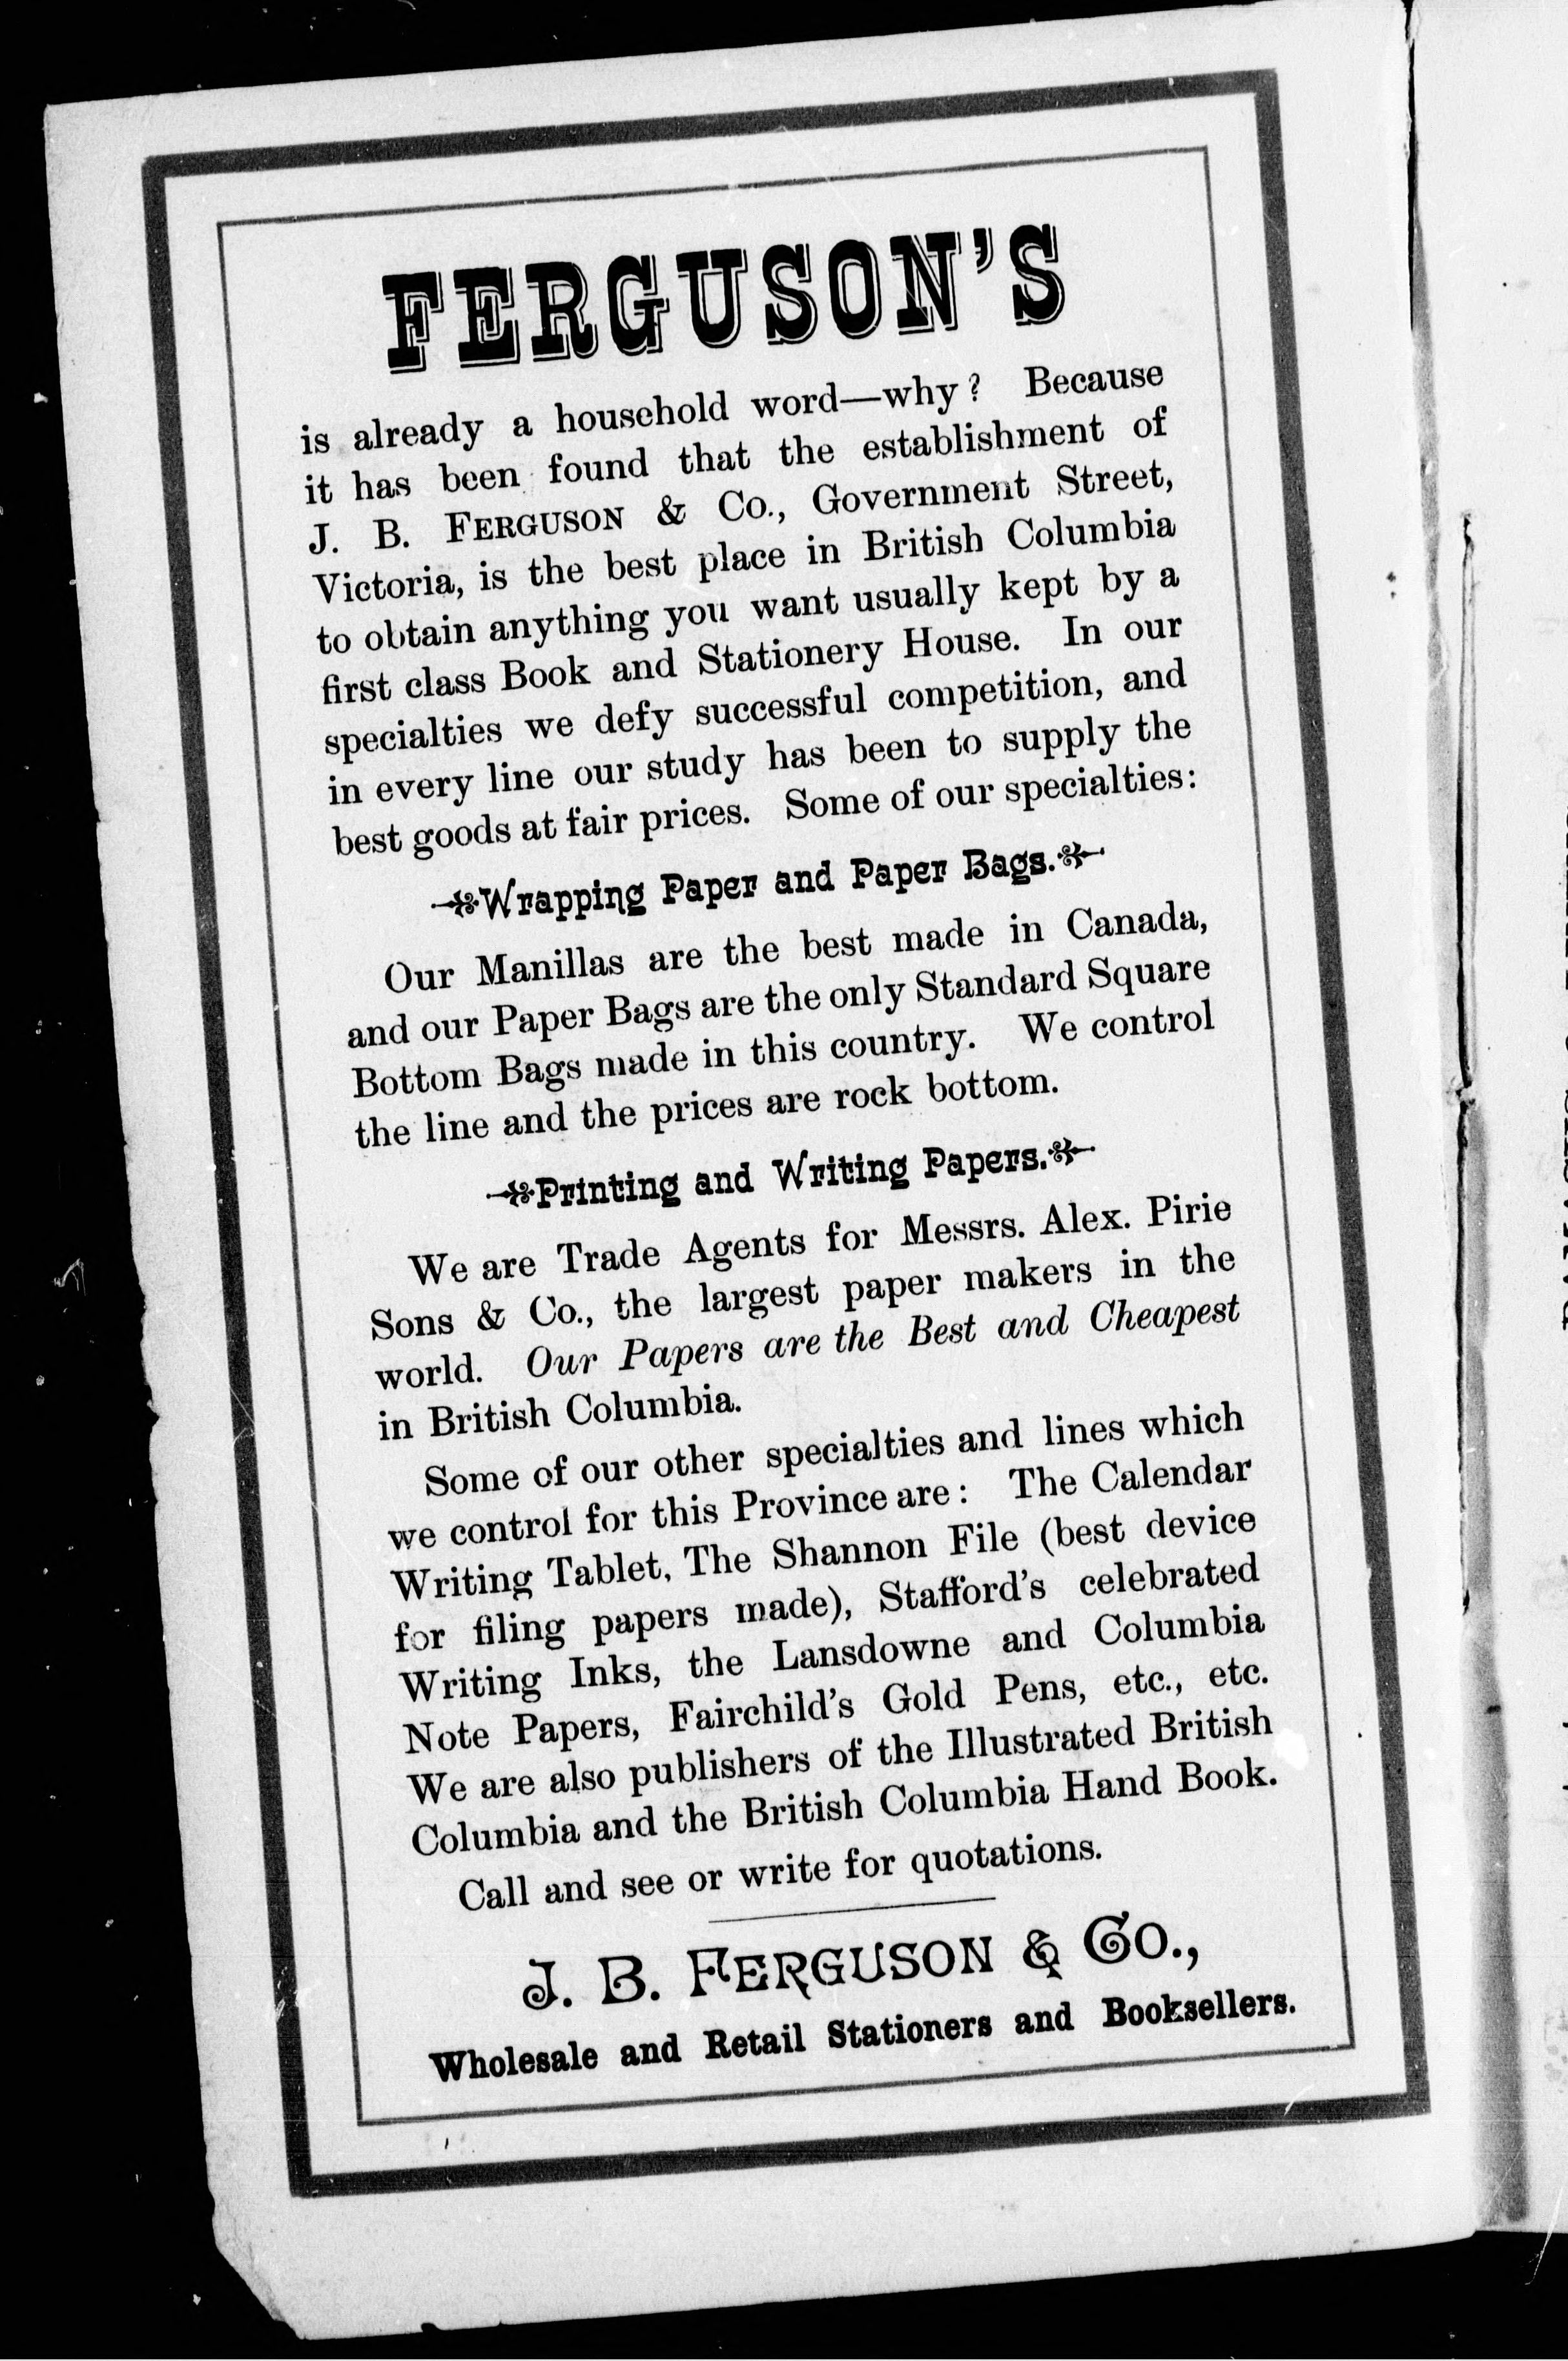 FERGUSON'S
is already a household word—why? Because
it has been found that the establishment of
J. B. FERGUSON & Co., Government Street,
Victoria, is the best place in British Columbia
to obtain anything you want usually kept by a
first class Book and Stationery House. In our
specialties we defy successful competition, and
in every line our study has been to supply the
best goods at fair prices. Some of our specialties:
Wrapping Paper and Paper Bags.
Our Manillas are the best made in Canada,
and our Paper Bags are the only Standard Square
Bottom Bags made in this country. We control
the line and the prices are rock bottom.
Printing and Writing Papers.
We are Trade Agents for Messrs. Alex. Pirie
Sons & Co., the largest paper makers in the
world. Our Papers are the Best and Cheapest
in British Columbia.
Some of our other specialties and lines which
we control for this Province are: The Calendar
Writing Tablet, The Shannon File (best device
for filing papers made), Stafford's celebrated
Writing Inks, the Lansdowne and Columbia
Note Papers, Fairchild's Gold Pens, etc., etc.
We are also publishers of the Illustrated British
Columbia and the British Columbia Hand Book.
Call and see or write for quotations.
J. B. FERGUSON & CO.,
Wholesale and Retail Stationers and Booksellers.